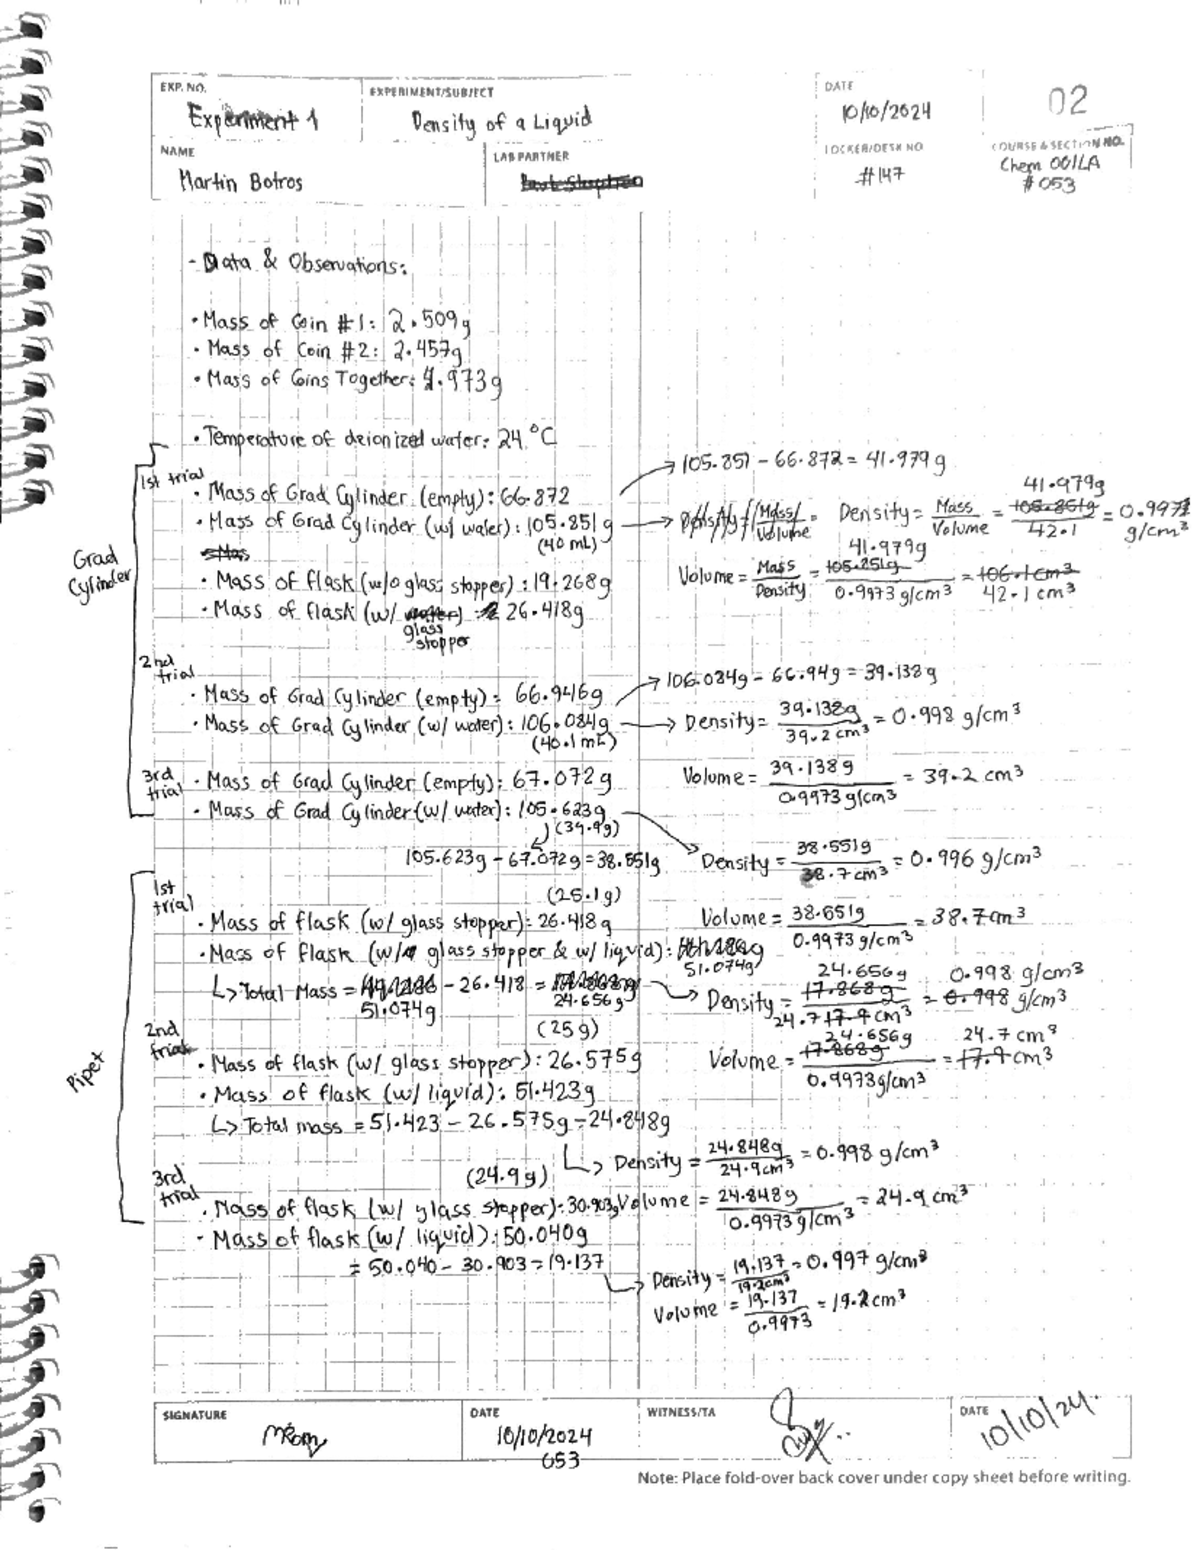 EXP. NO.
Experiment 1
EXPERIMENT/SUBJECT
Density of a Liquid
DATE
10/10/2024
02
NAME
Martin Botros
LAB PARTNER
LOCKER/DESK NO
#147
COURSE & SECTION NO.
Chem 001LA
#053
- Data & Observations:
• Mass of Coin #1: 2.509g
• Mass of Coin #2: 2.457g
• Mass of Coins Together: 4.973g
• Temperature of deionized water: 24.°C
Grad Cylinder
1st trial
• Mass of Grad Cylinder (empty): 66.872
→ 105.851 - 66.872 = 41.979g
• Mass of Grad Cylinder (w/ water): 105.851g
(40 mL)
→ Density = Mass/Volume = Density = Mass/Volume = 41.979g 105.851g/42.1 = 0.9971 g/cm³
• Mass of flask (w/o glass stopper): 19.268g
Volume = Mass/Density = 41.979g 105.851g/0.9973 g/cm³ = 106.1cm³ 42.1cm³
• Mass of flask (w/ water) : 26.418g
glass stopper
2nd trial
• Mass of Grad Cylinder (empty) = 66.946g
→ 106.084g - 66.94g = 39.138g
• Mass of Grad Cylinder (w/ water): 106.084g
(40.1mL)
→ Density = 39.138g/39.2cm³ = 0.998 g/cm³
3rd trial
• Mass of Grad Cylinder (empty): 67.072g
Volume = 39.138g/0.9973g/cm³ = 39.2 cm³
• Mass of Grad Cylinder (w/ water): 105.623g
(39.9g)
105.623g - 67.072g = 38.551g
Density = 38.551g/38.7cm³ = 0.996 g/cm³
Pipex
1st trial
(25.1g)
• Mass of flask (w/ glass stopper): 26.418g
Volume = 38.551g/0.9973g/cm³ = 38.7cm³
• Mass of flask (w/ glass stopper & w/ liquid):
51.074g
↳ Total Mass = - 26.418 =
51.074g
24.656g
→ Density = 24.656g 17.868g/24.7 17.9cm³ = 0.998 g/cm³ 0.998 g/cm³
2nd trial
(25g)
• Mass of flask (w/ glass stopper): 26.575g
Volume = 24.656g 17.868g/0.9973g/cm³ = 24.7 cm³ 17.9cm³
• Mass of flask (w/ liquid): 51.423g
↳ Total mass = 51.423 - 26.575g = 24.848g
↳ Density = 24.848g/24.9cm³ = 0.998 g/cm³
3rd trial
(24.9g)
• Mass of flask (w/ glass stopper): 30.903g
Volume = 24.848g/0.9973g/cm³ = 24.9 cm³
- Mass of flask (w/ liquid): 50.040g
= 50.040 - 30.903 = 19.137
→ Density = 19.137/19.2cm³ = 0.997 g/cm³
Volume = 19.137/0.9973 = 19.2cm³
SIGNATURE
DATE
10/10/2024
053
WITNESS/TA
DATE
10/10/24.
Note: Place fold-over back cover under copy sheet before writing.